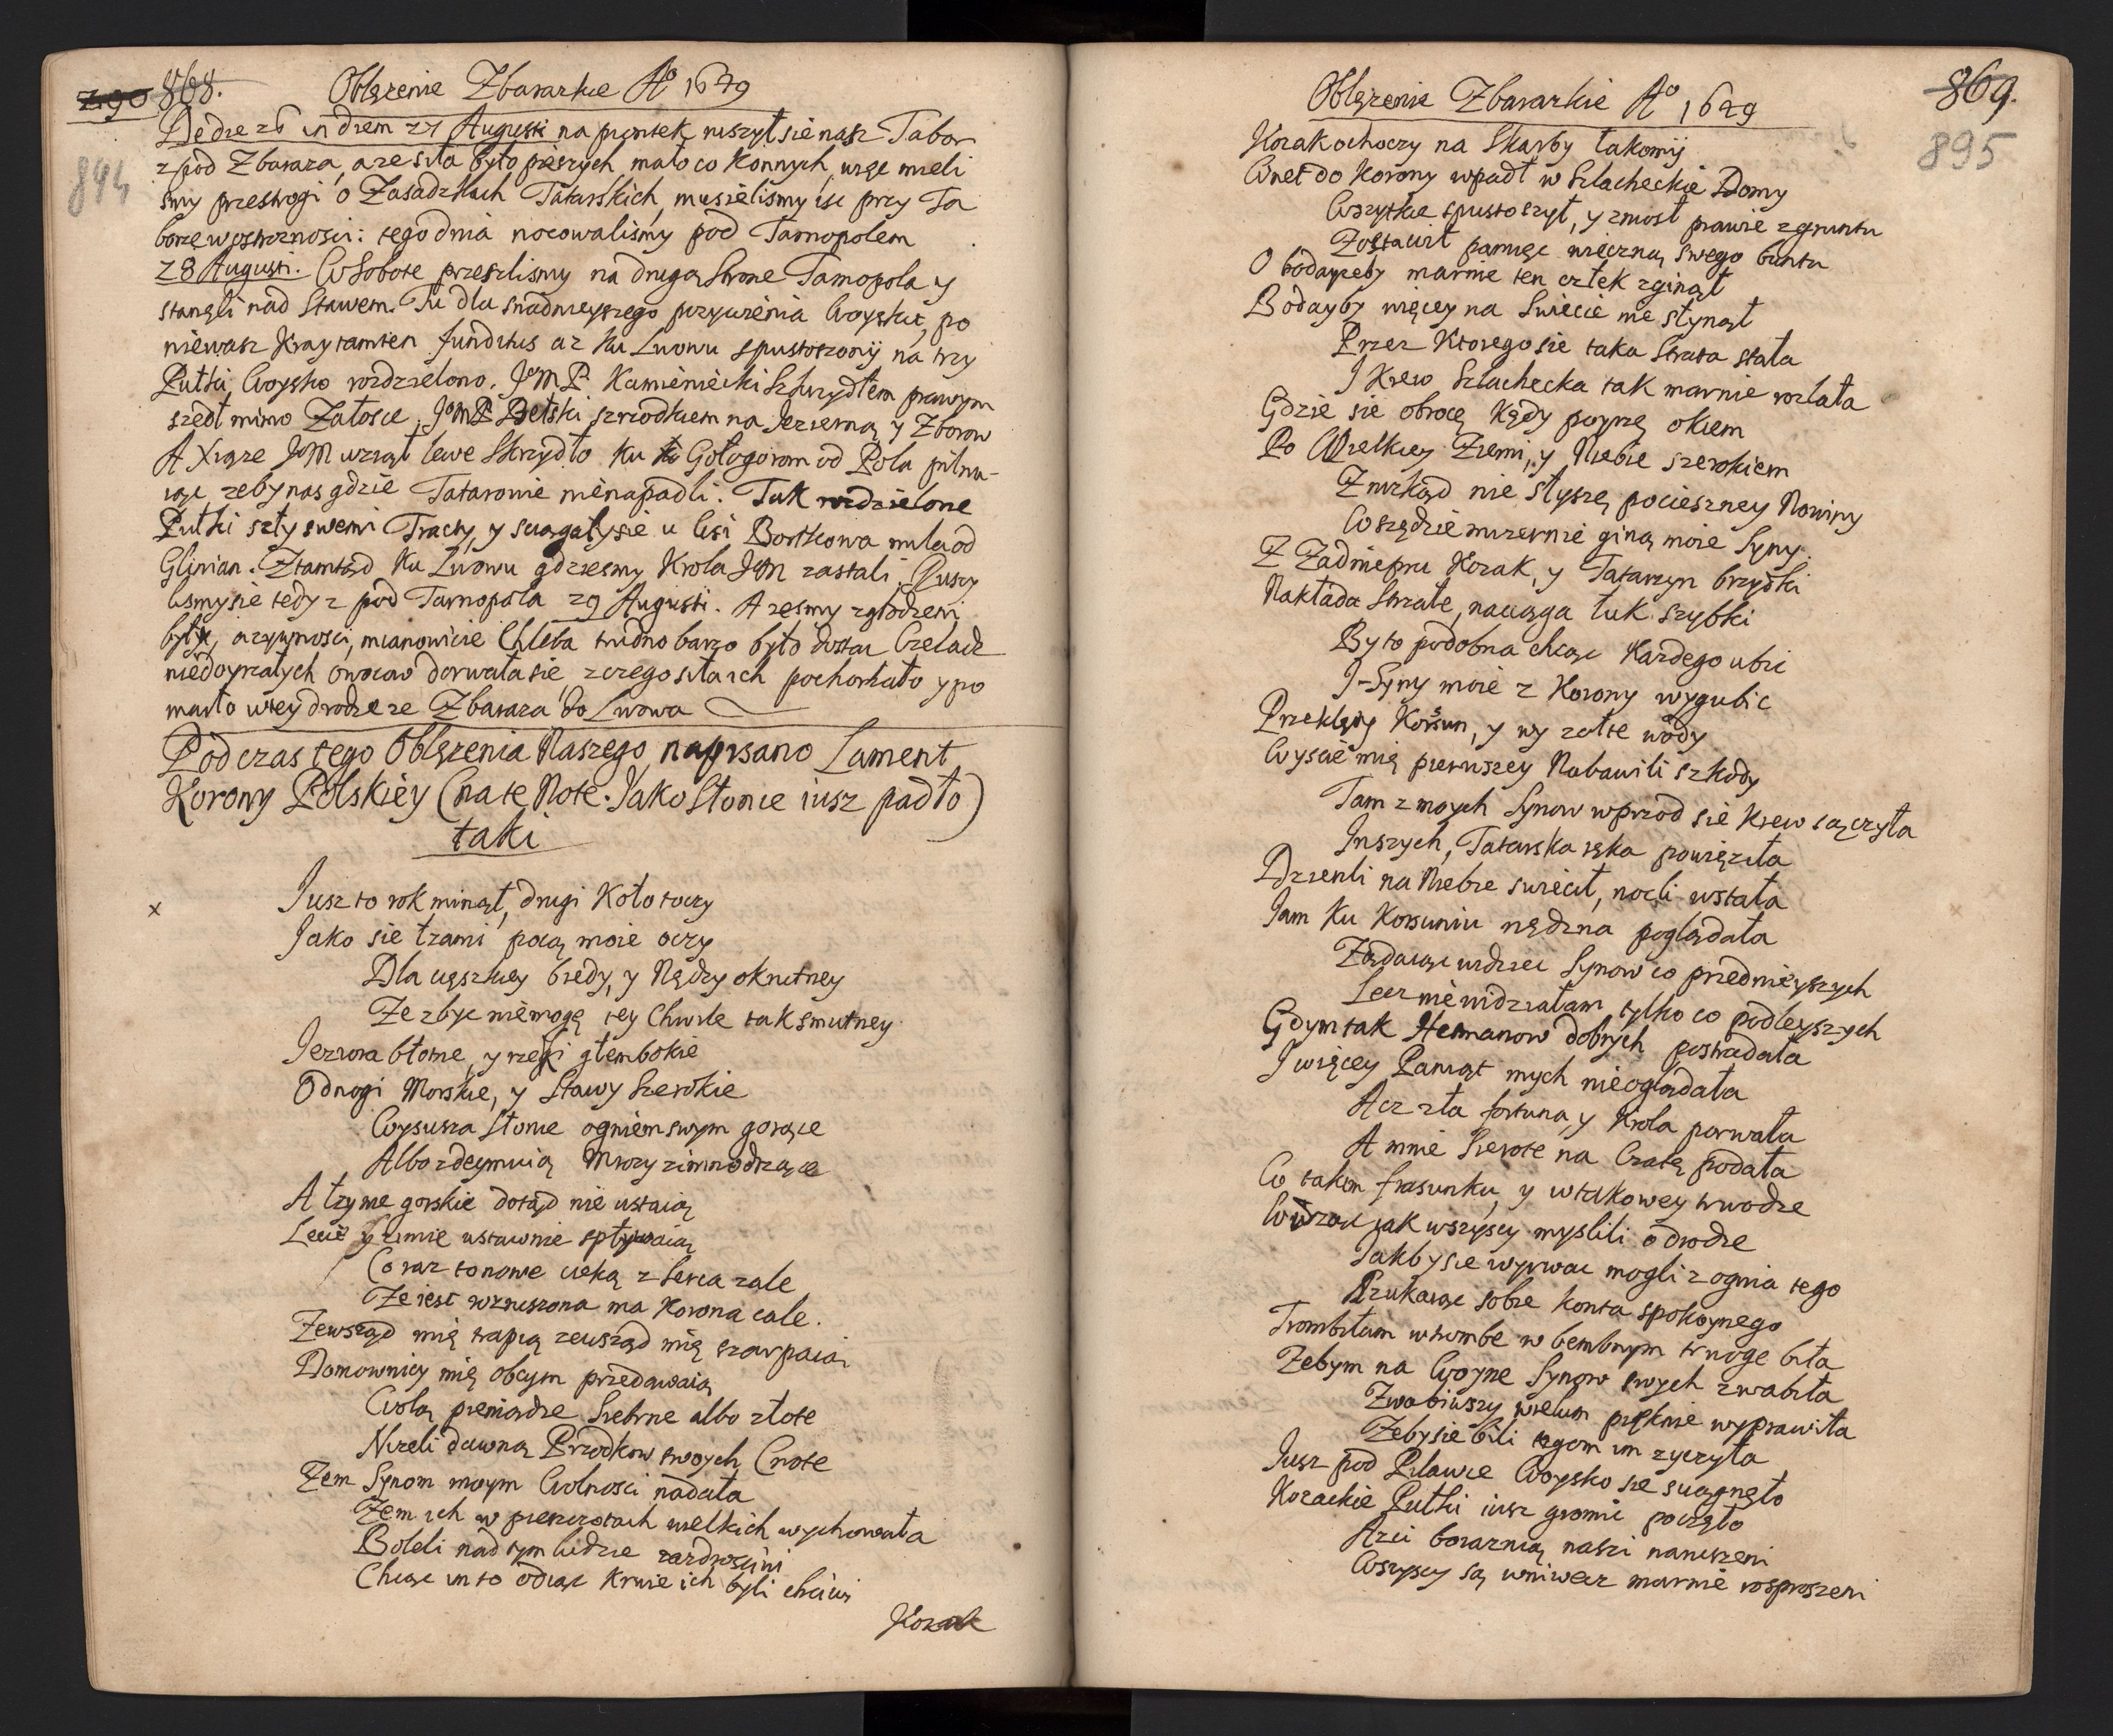 290 868. Oblężenie Zbaraskie Aº 1649
894
Die 26 in diem 27 Augusti na piontek ruszył się nasz Tabor
z pod Zbaraza, a ze siła było pieszych mało co Konnych, więc mieli
smy przestrogi o Zasadzkach Tatarskich, musielismy isc przy Ta
borze w ostroznosci: tego dnia nocowalismy pod Tarnopolem
28 Augusti. W Sobote przeszlismy na drugą Strone Tarnopola y
stanęli nad Stawem. Tu dla snadnieyszego pozywienia Woyska, po
niewasz Kray tamten funditus az ku Lwowu spustoszony na trzy
Pułki Woysko rozdzielono. JeM P. Kamieniecki Skrzydłem prawym
szedł mimo Załosce, JeMP Bełski szrodkiem na Jezierną y Zborow
A Xiąze JeM wziął lewe Skrzydło ku Gołogorom od Pola pilnu-
iąc, zeby nas gdzie Tatarowie nienapadli. Tak rozdzielone
Pułki szły swemi Tracty y sciągały sie u Wsi Bortkowa mila od
Glinian. Ztamtąd Ku Lwowu gdziesmy Krola JeM zastali. Ruszy
lismy sie tedy z pod Tarnopola 29 Augusti. A zesmy zgłodzeni
byli, a zywnosci, mianowicie Chleba trudno barzo było dostac Czeladz
niedoyrzałych owocow dorwała sie, z czego siła ich pochorzało y po
marło w tey drodze ze Zbaraza do Lwowa
Podczas tego Oblężenia Naszego, napisano Lament
Korony Polskiey (na te Note. Jako Słonce iusz padło)
taki
x
Jusz to rok minął, drugi Koło toczy
Jako sie łzami pocą moie oczy
Dla cięszkiey biedy, y Nędzy okrutney
Ze zbyc niemogę tey Chwile tak smutney
Jeziora błotne, y rzeki głembokie
Odnogi Morskie, y Stawy Szerokie
Wysusza Słonce ogniem swym gorące
Albo zdeymuią Mrozy zimnodrzące
A łzy me gorskie dotąd nie ustaią
Lecie y zimie ustawnie spływaią
Coraz to nowe cieką z Serca zale
Ze iest wzruszona ma Korona cale.
Zewsząd mię trapią zewsząd mię szarpaią
Domownicy mię obcym przedawaią
Wolą pieniądze Srebrne albo złote
Nizeli dawną Przodkow swoych Cnote
Zem Synom moym Wolnosci nadała
Zem ich w pieszczotach wielkich wychowała
Boleli nad tym ludzie zazdrosciwi
Chcąc im to odiąc Krwie ich byli chciwi
Kozak
Oblężenie Zbaraskie Aº 1649
869.
895
Kozak ochoczy na Skarby łakomy
Wnet do Korony wpadł w Szlacheckie Domy
Wszytkie spustoszył, y zniosł prawie z gruntu
Zostawił pamięc wieczną swego buntu
O bodayzeby marnie ten człek zginął
Bodayby więcey na Swiecie nie słynął
Przez Ktorego sie taka Strata stała
I Krew Szlachecka tak marnie rozlała
Gdzie sie obrocę Kędy poyzrę okiem
Po Wielkiey Ziemi, y Niebie szerokiem
Znikąd nie słyszę pocieszney Nowiny
Wszędzie mizernie giną moie Syny.
Z Zadniepru Kozak, y Tatarzyn brzydki
Nakłada Strzałe, naciąga łuk szybki
By to podobna chcąc Kazdego ubic
I Syny moie z Korony wygubic
Przeklęty Korsun, y wy zołte wody
Wyscie mię pierwszey Nabawili szkody
Tam z moych Synow wprzod sie Krew sączyła
Inszych, Tatarska ręka powięziła
Dzienli na Niebie swiecił, nocli wstała
Jam Ku Korsuniu nędzna poglądała
Ządaiąc widziec Synow co przednieyszych
Lecz niewidziałam tylko co podleyszych
Gdym tak Hetmanow dobrych postradała
I więcey Paniąt mych nieoglądała
Acz zła fortuna y Krola porwała
A mnie Sierote na Czatę podała
W takim frasunku, y w takowey trwodze
Widząc jak wszyscy myslili o drodze
Jakby sie wyrwac mogli z ognia tego
Szukaiąc sobie konta spokoynego
Trombiłam w trombe w bembnym trwoge biła
Zebym na Woyne Synow swych zwabiła
Zwabiwszy wielum pięknie wyprawiła
Zeby sie bili tegom im zyczyła
Jusz pod Pilawce Woysko sie sciągnęło
Kozackie Pułki iusz gromic poczęło
Azci boiaznią naszi naruszeni
Wszyscy są wniwecz marnie rosproszeni